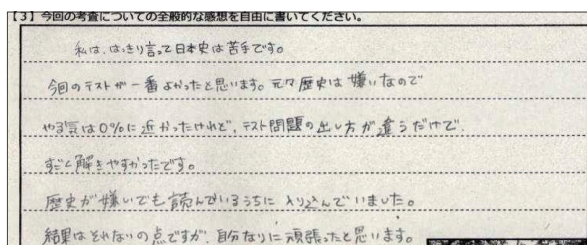 【3】今回の考査についての全般的な感想を自由に書いてください。
私は、はっきり言って日本史は苦手です。
今回のテストが一番よかったと思います。元々歴史は嫌いなので
やる気は0%に近かったけれど、テスト問題の出し方が違うだけで、
すごく解きやすかったです。
歴史が嫌いでも読んでいるうちに入り込んでいました。
結果はそれないの点ですが、自分なりに頑張ったと思います。